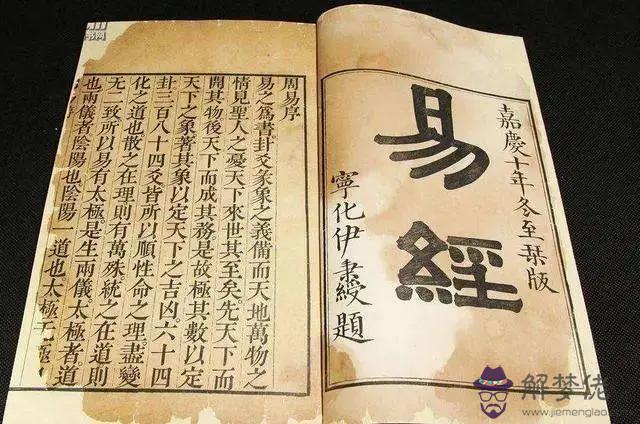 嘉慶十年冬至栞版
易經
寧化伊秉綬題
周易序
易之爲書卦爻彖象之義備而天地萬物之
情見聖人之憂天下來世其至矣先天下而
開其物後天下而成其務是故極其數以定
天下之象著其象以定天下之吉凶六十四
卦三百八十四爻皆所以順性命之理盡變
化之道也散之在理則有萬殊統之在道則
无一致所以易有太極是生兩儀太極者道
也兩儀者陰陽也陰陽一道也太極无極
解梦佬
www.jiemenglao.com